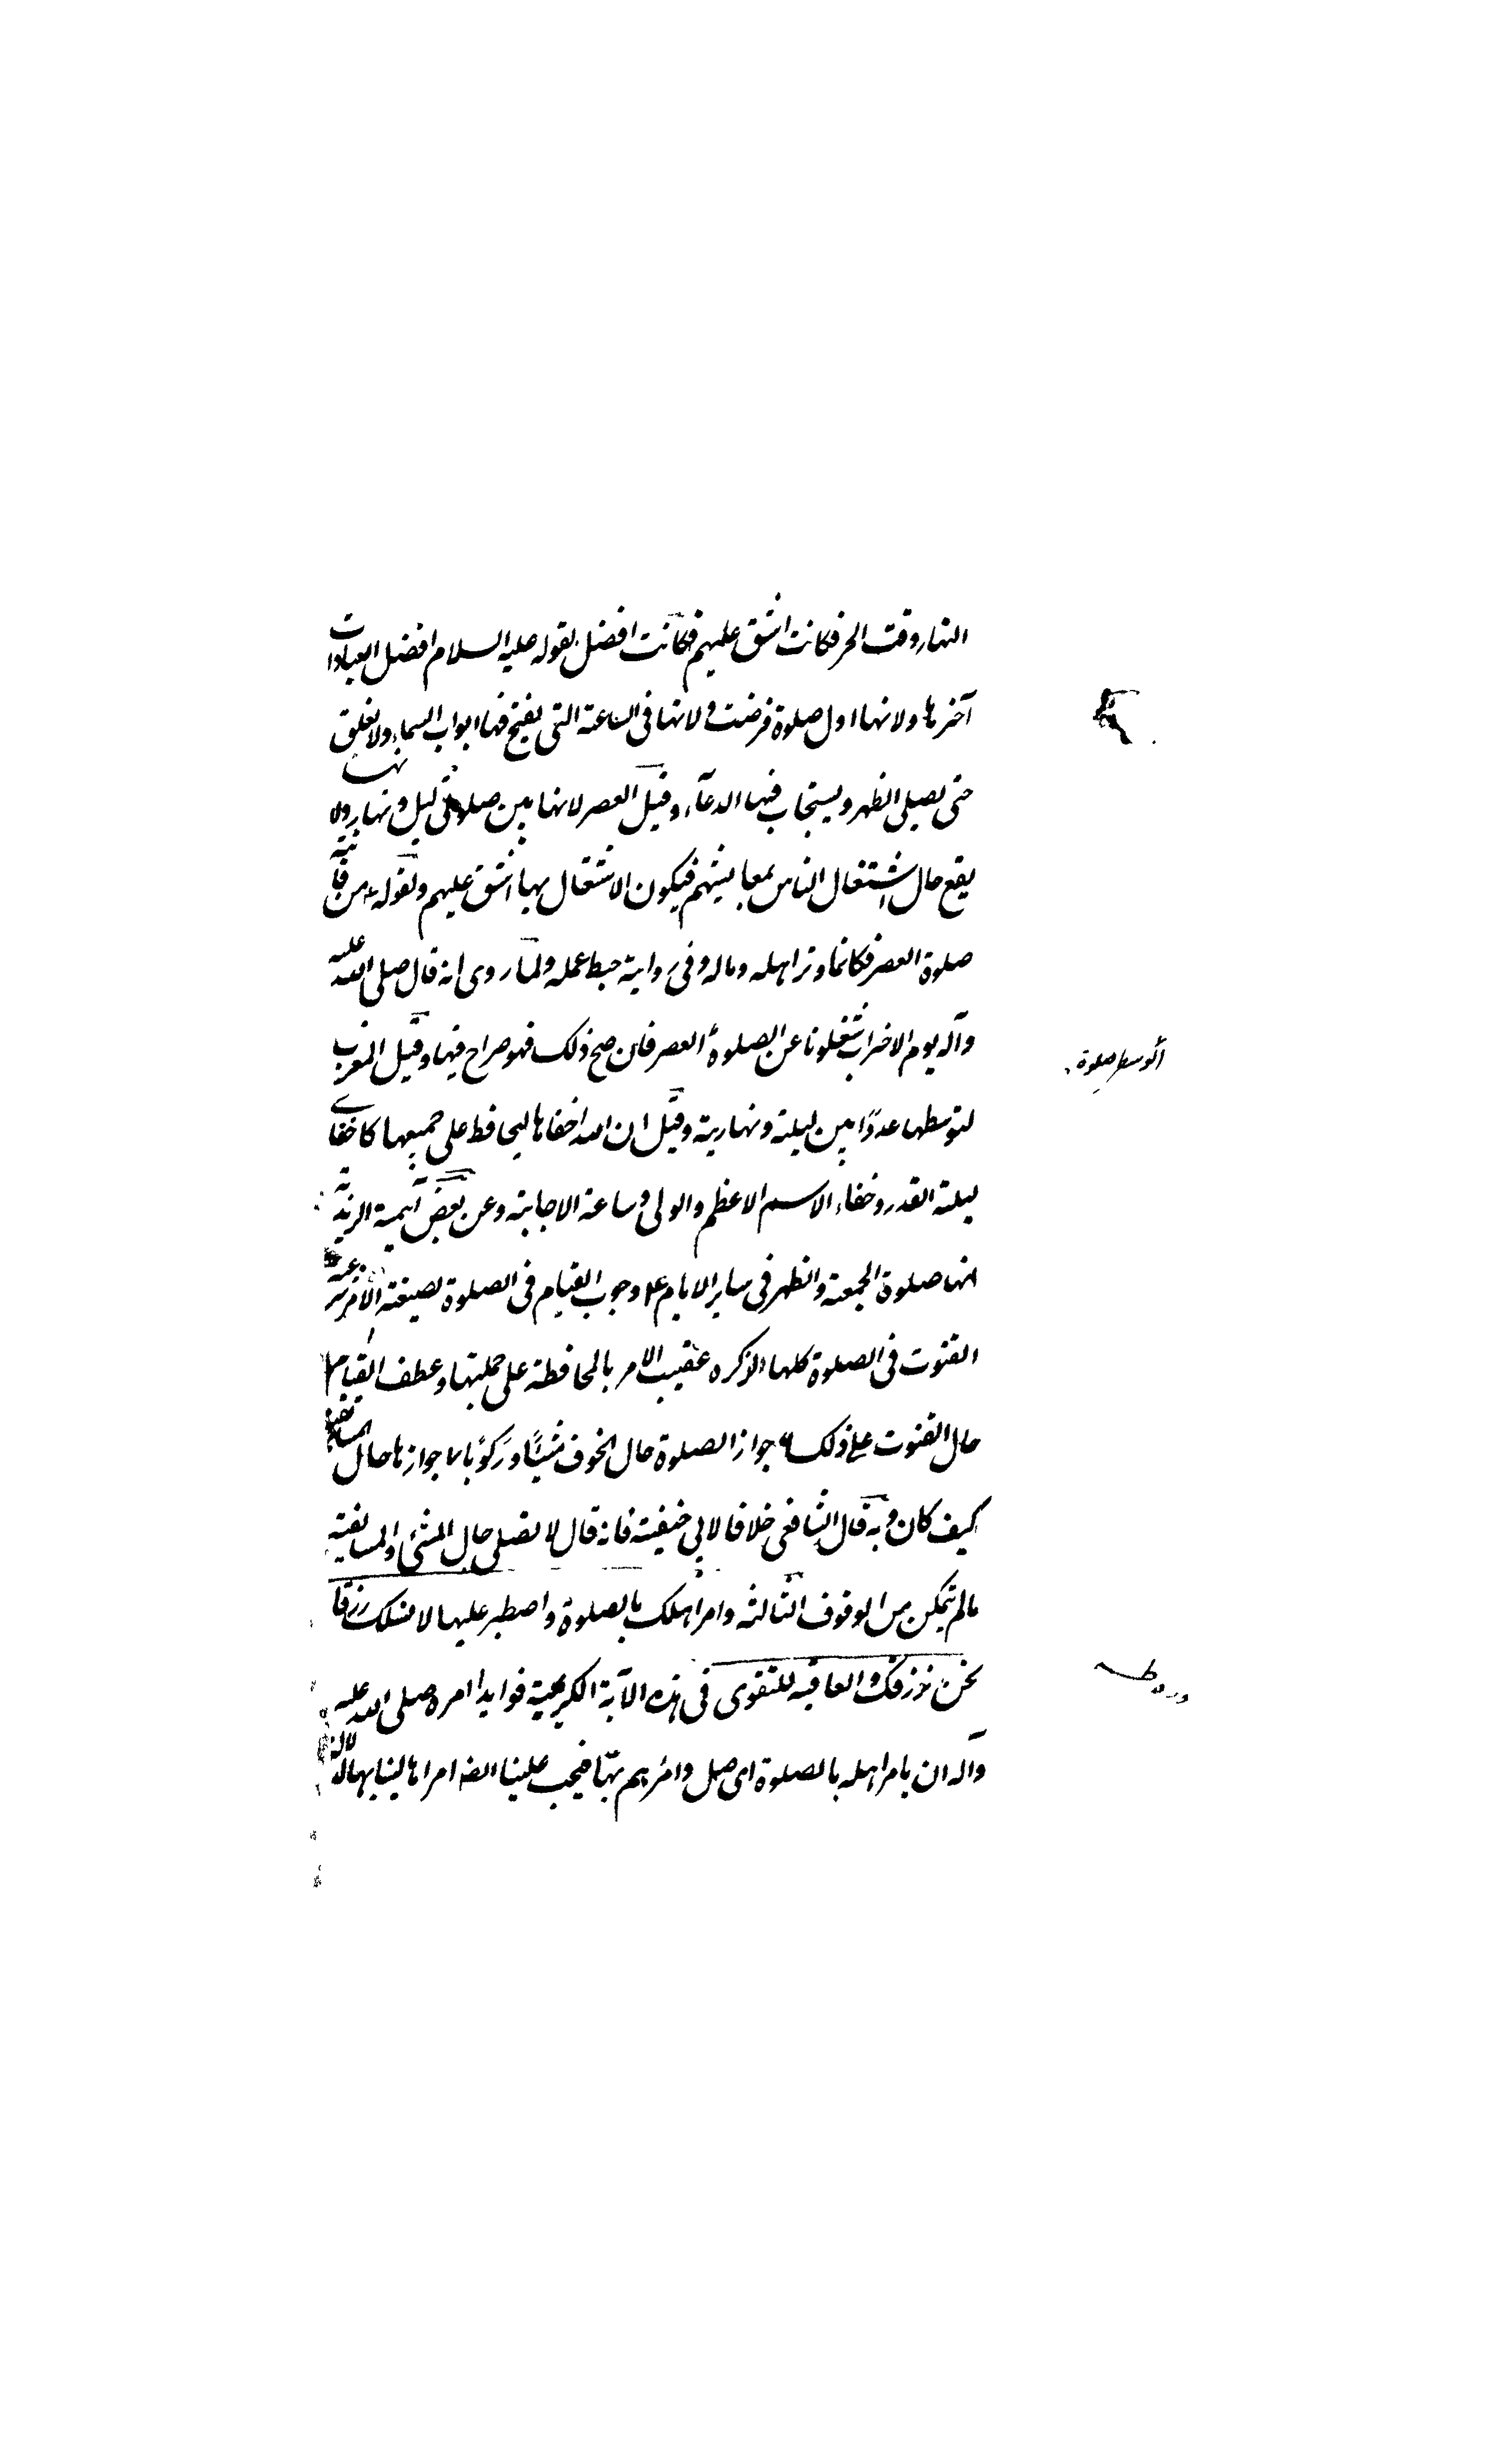 النهار وقت الحر فكانت اشق عليهم فكانت افضل لقوله عليه السلام افضل العبادات
آخرها ولانها اول صلوة فرضت ولانها فى الساعة التى يفتح فيها ابواب السماء ولا تغلق
حتى يصلى الظهر ويستجاب فيها الدعآء وقيل العصر لانها بين صلوتى ليل ونهار ولانها
يقع حال اشتغال الناس بمعايشهم فيكون الاشتغال بها اشق عليهم ولقوله ع من فاتته
صلوة العصر فكانما وتر اهله وماله وفى رواية حبط عمله ولما روى انه قال صلى الله عليه
وآله يوم الاحزاب شغلونا عن الصلوة العصر فان صح ذلك فهو صراح فيها وقيل المغرب
الوسطى صلوة
لتوسطها عددًا بين ليلية ونهارية وقيل ان الله اخفاها ليحافظ على جميعها كاخفاء
ليلة القدر وخفاء الاسم الاعظم والولى وساعة الاجابة وعن بعض آيمة الزيدية
انها صلوة الجمعة والظهر فى ساير الايام ٤ وجوب القيام فى الصلوة لصيغة الامر
القنوت فى الصلوة كلها لذكره عقيب الامر بالمحافظة على جملتها وعطف القيام
حال القنوت على ذلك ٦ جواز الصلوة حال الخوف مشيًا وركوبا ٧ جوازها حال المسايفة
كيف كان وبه قال الشافعى خلافا لابى حنيفة فانه قال لا تصلى حال المشى والمسايفة
مالم يتمكن من الوقوف الثالثه وامر اهلك بالصلوة واصطبر عليها لا نسئلك رزقا
نحن نرزقك والعاقبة للتقوى فى هذه الآية الكريمة فوايد ا امره صلى الله عليه
وآله ان يامر اهله بالصلوة اى صل وامرهم بها فيجب علينا ايضا امر اهالينا بها